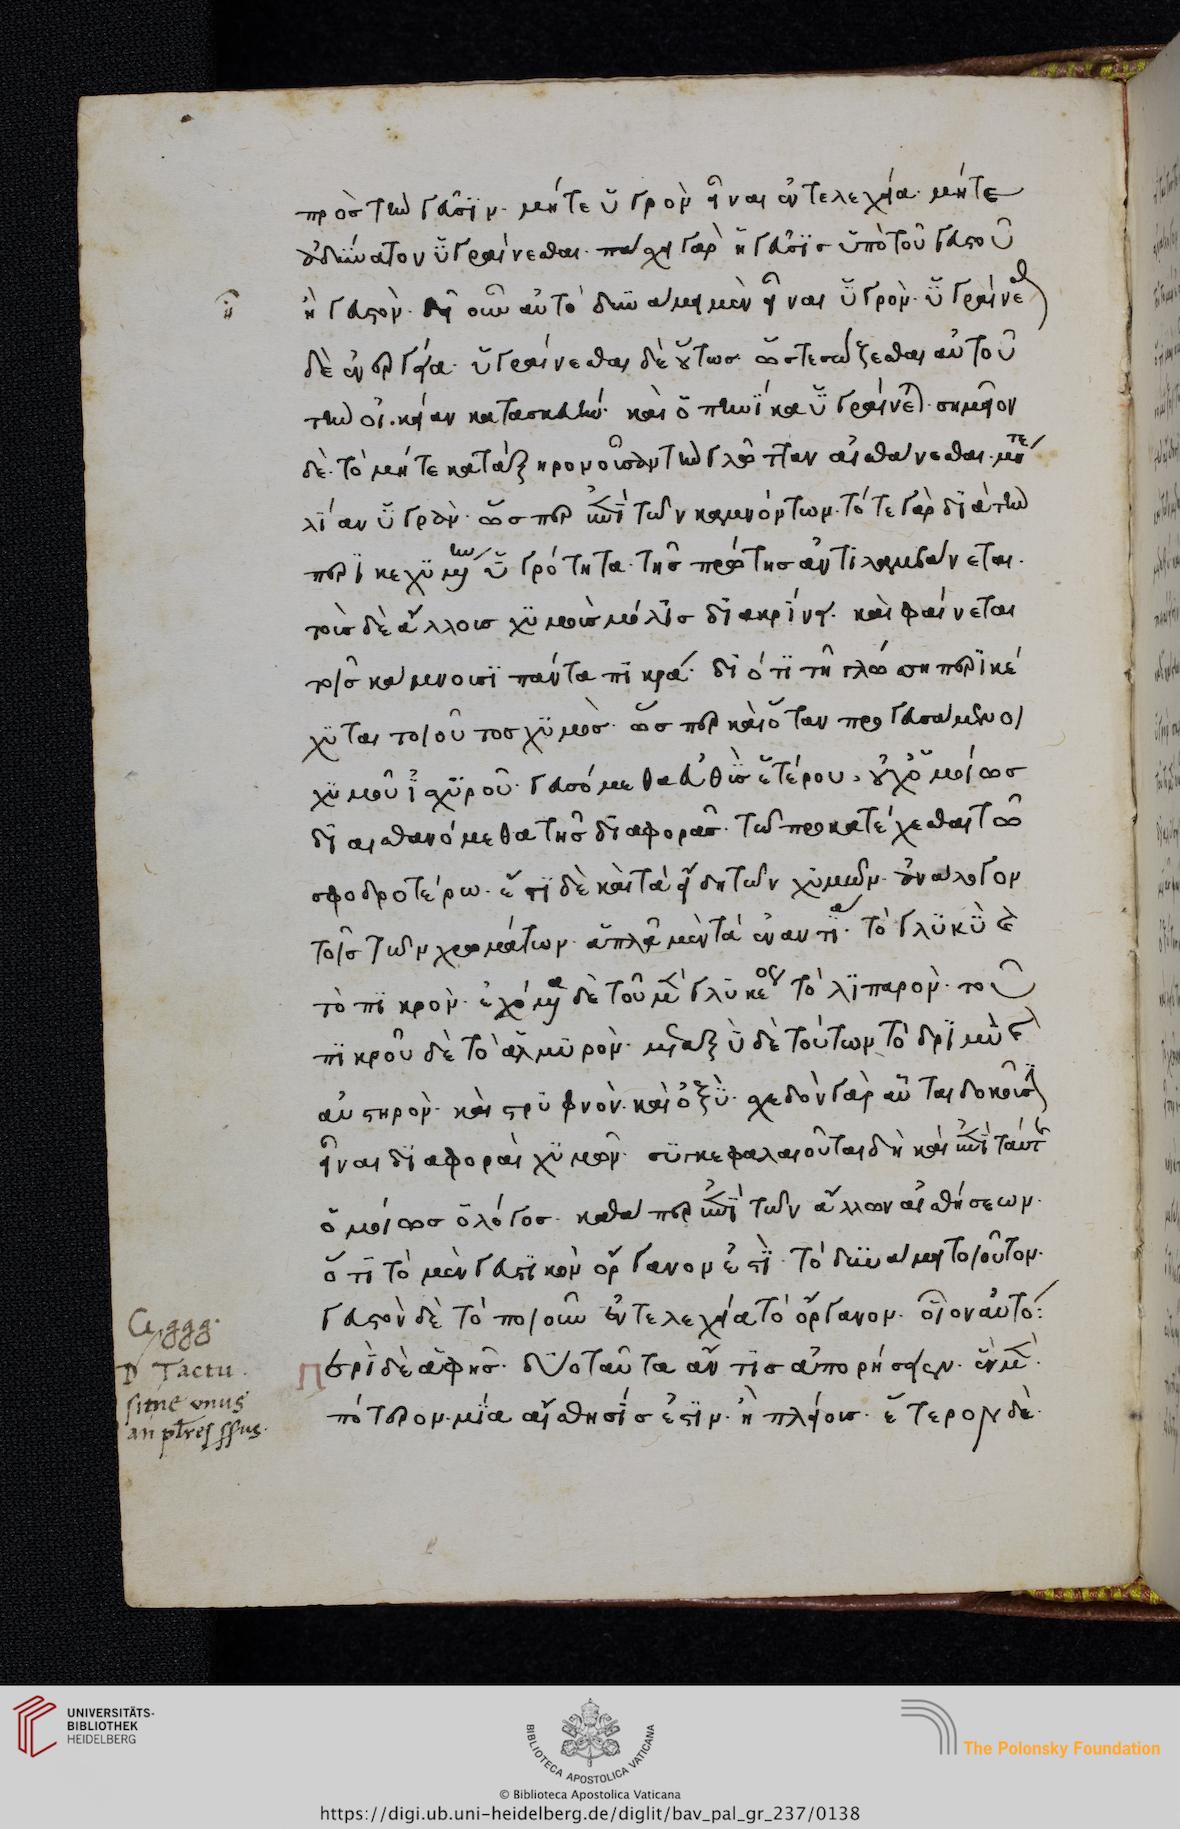 πρὸς τὴν γεῦσϊν· μήτε ὑγρὸν εἶναι ἐντελεχεία· μήτε
ἀδύνατον ὑγραίνεσθαι· πάσχει γὰρ ἡ γεῦσϊς ὑπὸ τοῦ γευστοῦ
ᾗ γευστὸν· δεῖ οὖν αὐτὸ δυνάμει μὲν εἶναι ὑγρὸν· ὑγραίνεσθ
δὲ ἐνεργεία· ὑγραίνεσθαι δὲ οὕτως· ὥστε σώζεσθαι αὐτοῦ
τὴν οἰκείαν κατασκευήν· καὶ ὅπηνίκα ὑγραίνεται· σημεῖον
δὲ· τὸ μήτε κατάξηρον οὖσαν τὴν γλῶτταν αἰσθάνεσθαι· μήτε
λίαν ὑγρὰν· ὥσπερ ἐπὶ τῶν καμνόντων· τότε γὰρ διὰ τὴν
περικεχυμένην ὑγρότητα· τῆς πρώτης ἀντιλαμβάνεται·
τοὺς δὲ ἄλλους χυμοὺς μόλις διακρίνει· καὶ φαίνεται
τοῖς κάμνουσι πάντα πικρά· διότι τῇ γλώσσῃ περικέ
χυται τοιοῦτος χυμὸς· ὥσπερ καὶ ὅταν προγευσάμενοι
χυμοῦ ἰσχυροῦ· γευσόμεθα εὐθὺς ἑτέρου· οὐχ ὁμοίως
διαισθανόμεθα τῆς διαφορᾶς· τῶ προκατέχεσθαι τῶ
σφοδροτέρω· ἔστι δὲ καὶ τὰ εἴδη τῶν χυμῶν· ἀνάλογον
τοῖς τῶν χρωμάτων· ἁπλᾶ μὲν τὰ ἐναντία· τὸ γλυκὺ καὶ
τὸ πικρὸν· ἐχόμενα δὲ τοῦ μὲν γλυκέος τὸ λιπαρὸν· τοῦ
πικροῦ δὲ τὸ ἁλμυρὸν· μεταξὺ δὲ τούτων τὸ δριμὺ καὶ
αὐστηρὸν· καὶ στρυφνὸν· καὶ ὀξὺ· σχεδὸν γὰρ αὗται δοκοῦσιν
εἶναι διαφοραὶ χυμῶν· συγκεφαλαιοῦται δὴ καὶ ἐπὶ ταύτης
ὁμοίως ὁ λόγος· καθάπερ ἐπὶ τῶν ἄλλων αἰσθήσεων·
ὅτι τὸ μὲν γευστικὸν ὄργανον ἐστὶ· τὸ δυνάμει τοιοῦτον·
γευστὸν δὲ τὸ ποιοῦν ἐντελεχεία τὸ ὄργανον· οἷον αὐτό:
Περὶ δὲ ἁφῆς· δύο ταῦτα ἄν τις ἀπορήσειεν· ἓν μὲν·
πότερον μία αἴσθησίς ἐστιν· ἢ πλείους· ἕτερον δὲ·
D Tactu.
sitne unus
an plures
UNIVERSITÄTS-
BIBLIOTHEK
HEIDELBERG
BIBLIOTECA APOSTOLICA VATICANA
The Polonsky Foundation
© Biblioteca Apostolica Vaticana
https://digi.ub.uni-heidelberg.de/diglit/bav_pal_gr_237/0138